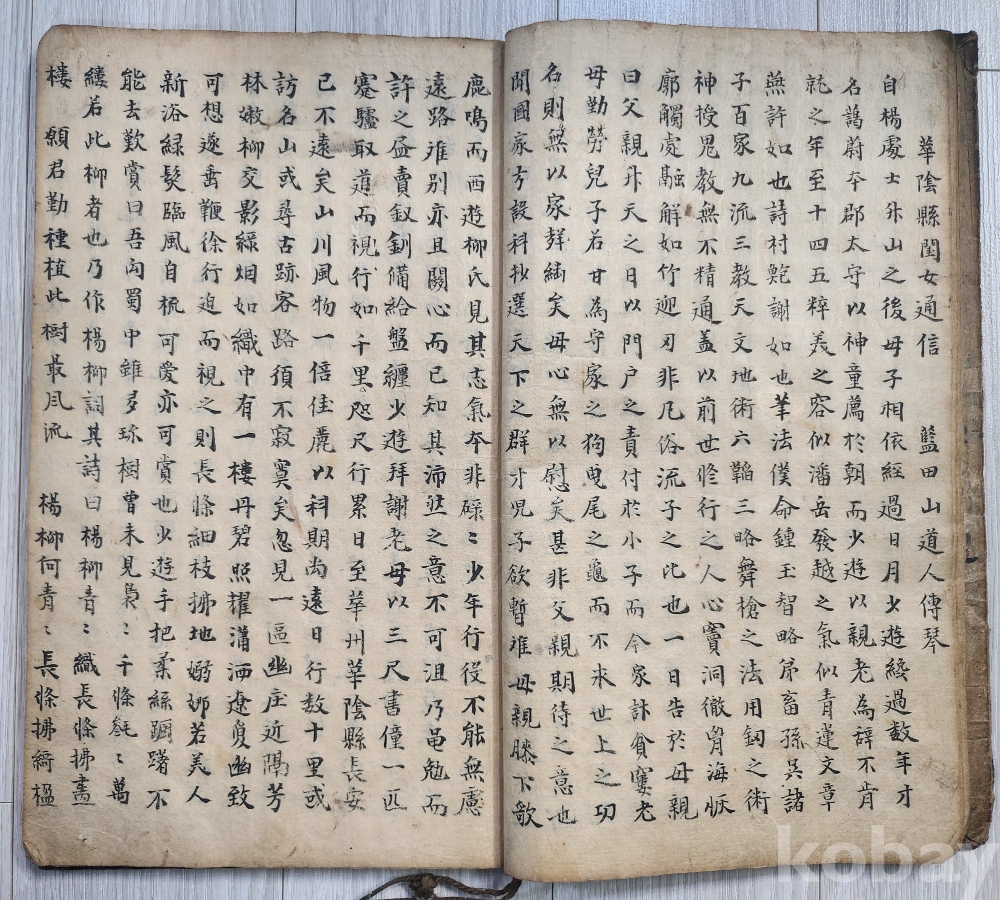 華陰縣閨女通信　藍田山道人傳琴
自楊處士升山之後母子相依經過日月少遊纔過數年才
名藹蔚本郡太守以神童薦於朝而少遊以親老為辞不肯
就之年至十四五粹美之容似潘岳發越之氣似青蓮文章
燕許如也詩材鮑謝如也筆法僕命鍾王智略弟畜孫吳諸
子百家九流三教天文地術六韜三略舞槍之法用釖之術
神授鬼教無不精通盖以前世修行之人心竇洞徹胷海恢
廓觸處融解如竹迎刃非凡俗流子之比也一日告於母親
曰父親升天之日以門户之責付於小子而今家計貧窶老
母勤勞兒子若甘為守家之狗曳尾之龜而不求世上之功
名則無以家聲繼矣母心無以慰矣甚非父親期待之意也
聞國家方設科抄選天下之群才兒子欲暫離母親膝下歌
鹿鳴而西遊柳氏見其志氣本非碌〻少年行役不能無慮
遠路離别亦且關心而已知其沛然之意不可沮乃黾勉而
許之盡賣釵釧備給盤纏少遊拜謝老母以三尺書僮一匹
蹇驢取道而視行如千里咫尺行累日至華州華陰縣長安
已不遠矣山川風物一倍佳麗以科期尙遠日行数十里或
訪名山或尋古跡客路須不寂寞矣忽見一區幽庄近隔芳
林嫩柳交影綠烟如織中有一樓丹碧照耀瀟洒遼夐幽致
可想遂垂鞭徐行迫而視之則長條細枝拂地嫋娜若美人
新浴綠髮臨風自梳可愛亦可賞也少遊手把柔絲躕躇不
能去歎賞曰吾向蜀中雖多珎樹曾未見裊〻千條毿〻萬
縷若此柳者也乃作楊柳詞其詩曰楊柳青〻織長條拂畵
樓　願君勤種植此樹最風流　楊柳何青〻長條拂綺楹